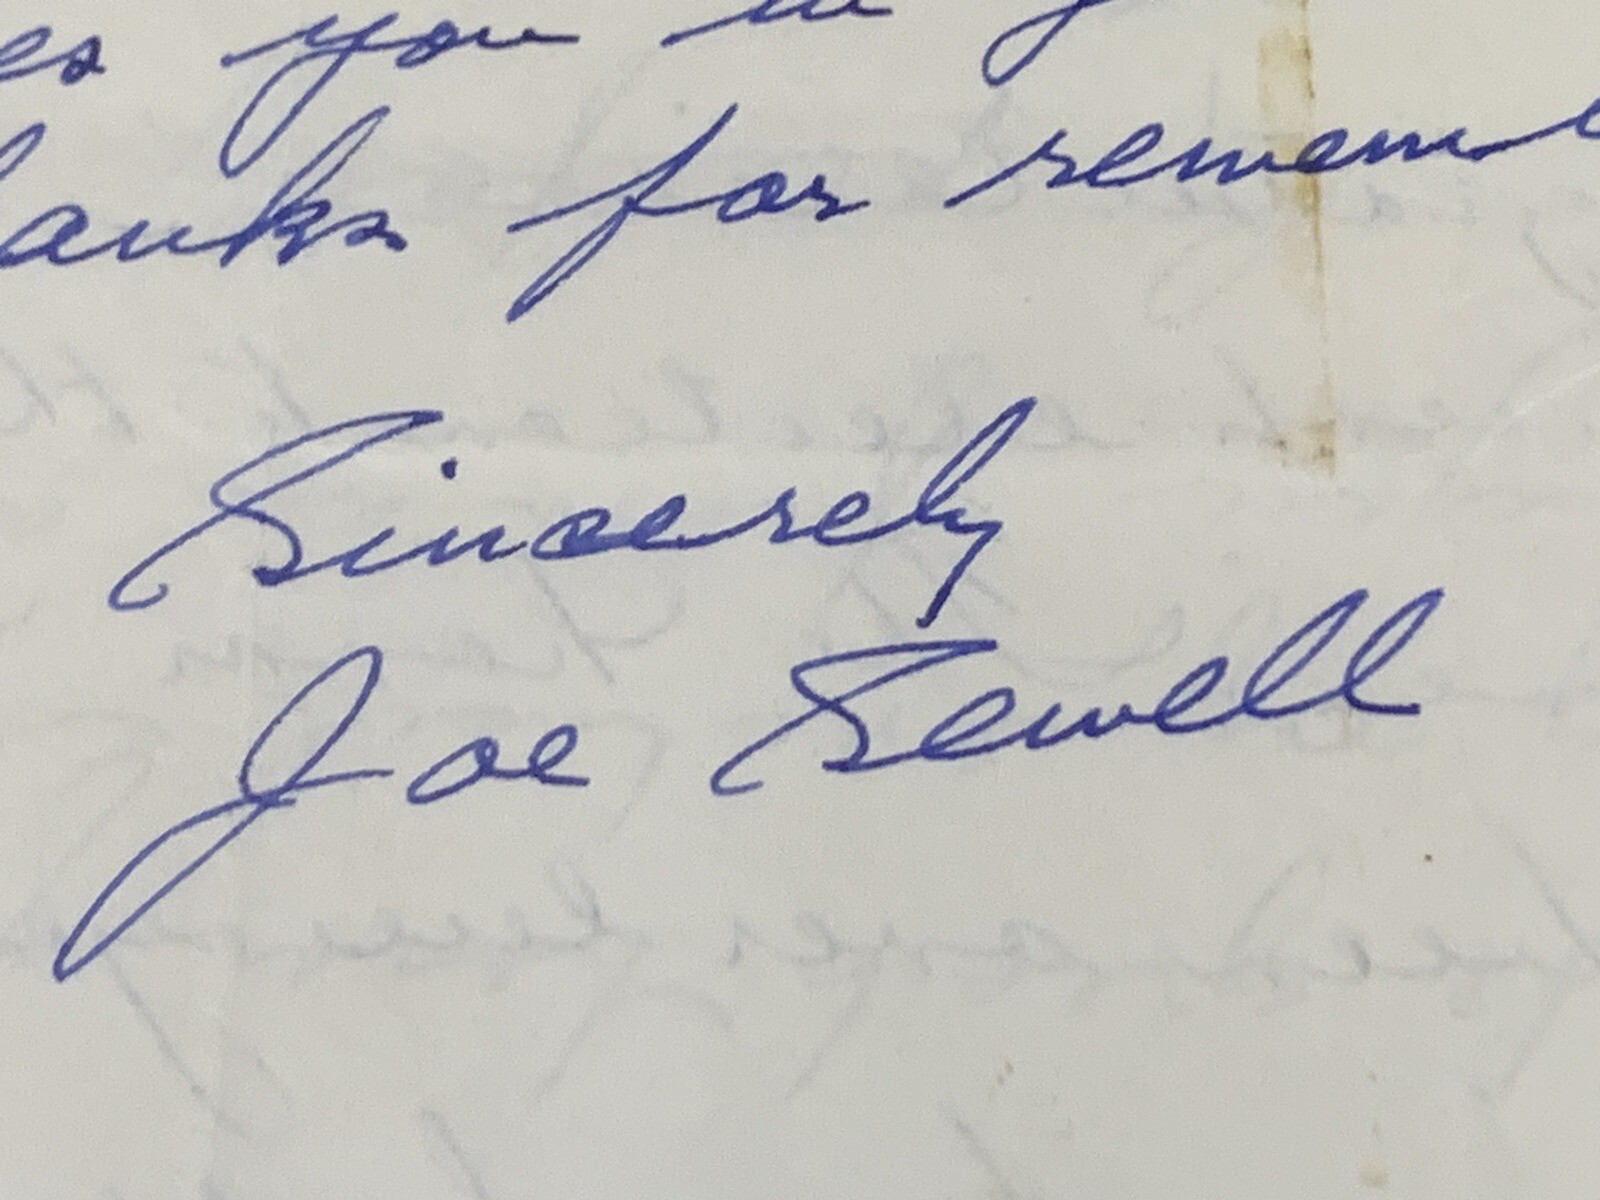 es you in
hanks for remem
Sincerely
Joe Sewell